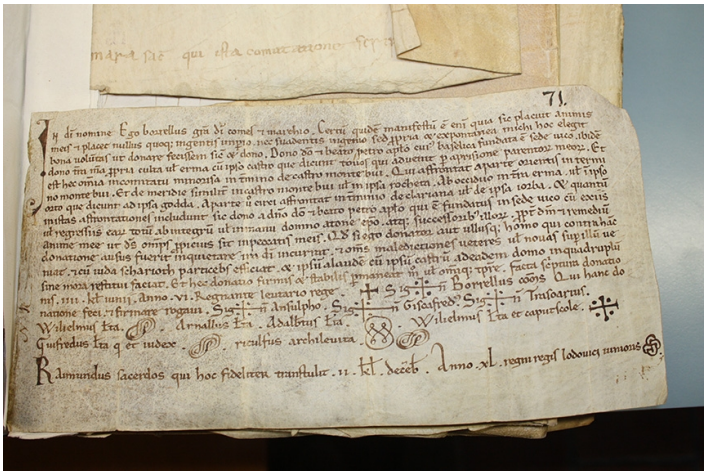 mara sic qui ista comutatione
71.
In di nomine. Ego borellus gra di comes & marchio. Certu quide manifestu e eni quia sic placuit animis
meis & placet nullus quoq; ingentis impio nec suadentis ingenio sed ppria & expontanea michi hoc elegit
bona voluntas ut donare fecissem sic & dono. Dono do & beato petro aplo cui baselica fundata e sede vico, ibide
dono ppria culta ul erma cu ipso castro que dicunt tous qui advenit p aprisione parentor meor. Et
est hec omia incomitatu minorisa intmino de castro monte bui. Qui affrontat aparte orientis in termi
no monte bui. Et de meridie similit incastro monte bui ul in ipsa rocheta. Ab occiduo erma ul ipso
orto que dicunt ad ipsa godda. Aparte circi affrontat in tmino de clariana ul de ipsa iorba. & quantu
instas affrontationes includunt sic dono a dno do & beato petro aplo qui e fundatus in sede vico cu exeiis
ul regressiis ear totu ab integru ul inmanu domno atone epo atq; successorib' illor. ppt dm & remediu
anime mee ut ds omps ppicius sit inpeccatis meis. Qd si ego donator aut ullusq; homo qui contra hanc
donatione ausus fuerit inquietare ira di incurrat & oms maledictiones veteres ul novas sup illu ve
niat & cu iuda scharioth particebs efficiat & ipsu alaude cu ipsu castru adeadem domo inquadruplu
sine mora restituat faciat. Et hec donatio firmis & stabilis pmaneat m ul omniq; tpre. facta scriptura donatio
nis. iii. kl iunii. anno. vi. Regnante leutario rege. Sig+n Borrellus coms Qui hanc do
natione feci & firmare rogavi. Sig+n Ansulpho. Sig+n Giscafred. Sig+n Trasoarius.
Wilielmus lta. Arnallus lta. Adalbtus lta. Wilielmus lta et caputscole.
Guifredus lta q et iudex. riculfus archilevita.
Raimundus sacerdos qui hoc fideliter transtulit. ii. kl. deceb. Anno. xl. regni regis lodovici iunioris